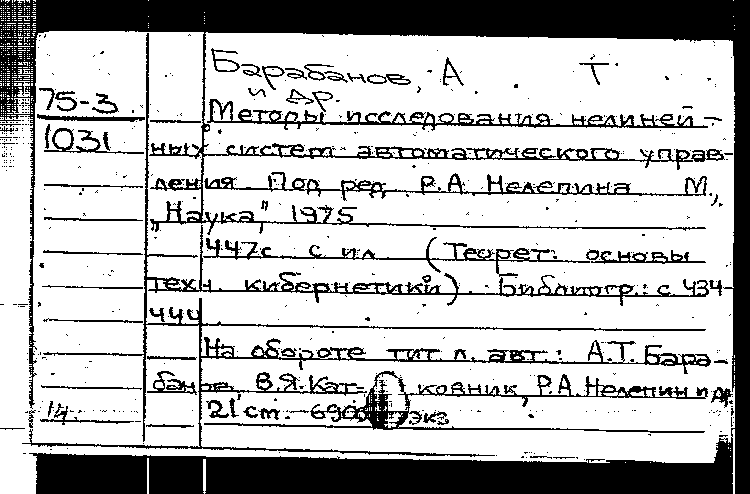 Барабанов, А. Т.
и др.
75-3
Методы исследования нелиней-
1031
ных систем автоматического управ-
ления Под ред. Р.А. Нелепина М.,
„Наука", 1975
447с с ил (Теорет. основы
техн. кибернетики). Библиогр.: с 434-
444
На обороте тит л. авт.: А.Т. Бара-
банов, В.Я. Кат- ковник, Р.А. Нелепин и др
14
21 см. экз